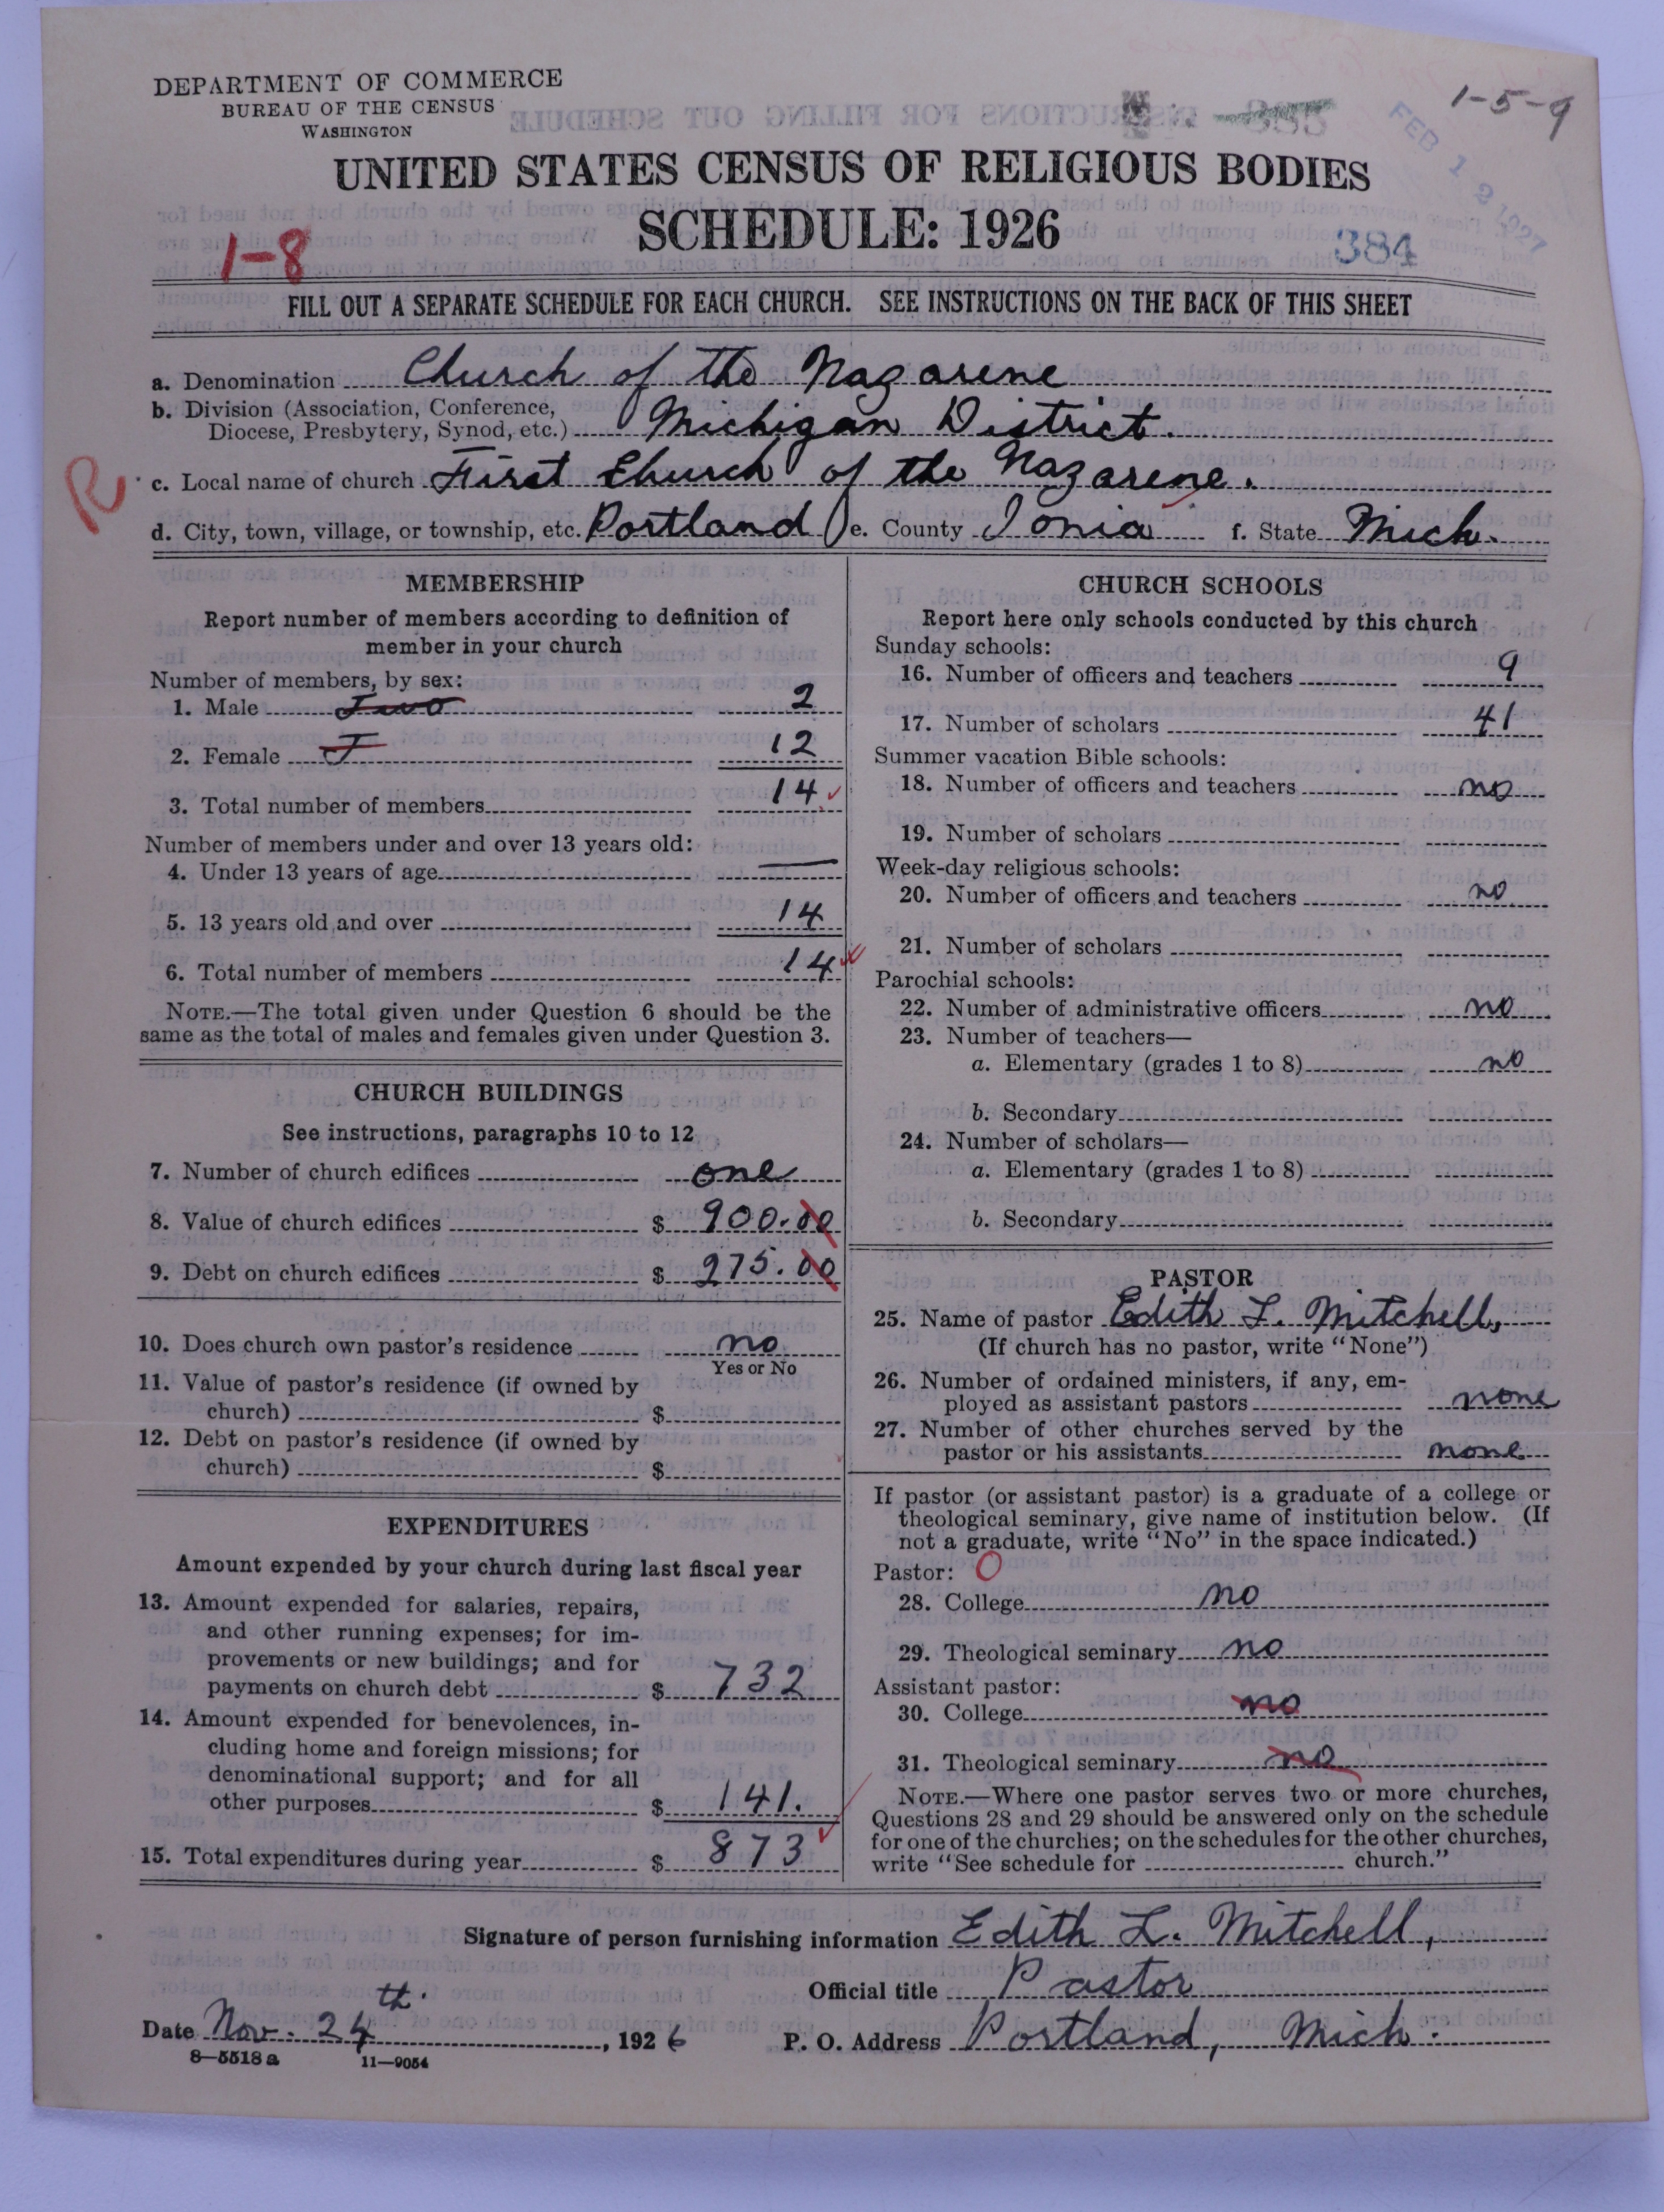 DEPARTMENT OF COMMERCE
BUREAU OF THE CENSUS
WASHINGTON
1-5-9
FEB 12 1927
UNITED STATES CENSUS OF RELIGIOUS BODIES
SCHEDULE: 1926
1-8
384
FILL OUT A SEPARATE SCHEDULE FOR EACH CHURCH. SEE INSTRUCTIONS ON THE BACK OF THIS SHEET
a. Denomination Church of the Nazarene
b. Division (Association, Conference,
Diocese, Presbytery, Synod, etc.) Michigan District.
R
c. Local name of church First Church of the Nazarene.
d. City, town, village, or township, etc. Portland e. County Ionia f. State Mich.
MEMBERSHIP
Report number of members according to definition of
member in your church
Number of members, by sex:
1. Male Two 2
2. Female T 12
3. Total number of members 14
Number of members under and over 13 years old:
4. Under 13 years of age —
5. 13 years old and over 14
6. Total number of members 14
NOTE.—The total given under Question 6 should be the
same as the total of males and females given under Question 3.
CHURCH BUILDINGS
See instructions, paragraphs 10 to 12
7. Number of church edifices one
8. Value of church edifices $ 900.00
9. Debt on church edifices $ 275.00
10. Does church own pastor's residence no
Yes or No
11. Value of pastor's residence (if owned by
church) $
12. Debt on pastor's residence (if owned by
church) $
EXPENDITURES
Amount expended by your church during last fiscal year
13. Amount expended for salaries, repairs,
and other running expenses; for im-
provements or new buildings; and for
payments on church debt $ 732
14. Amount expended for benevolences, in-
cluding home and foreign missions; for
denominational support; and for all
other purposes $ 141.
15. Total expenditures during year $ 873
CHURCH SCHOOLS
Report here only schools conducted by this church
Sunday schools:
16. Number of officers and teachers 9
17. Number of scholars 41
Summer vacation Bible schools:
18. Number of officers and teachers no
19. Number of scholars
Week-day religious schools:
20. Number of officers and teachers no
21. Number of scholars
Parochial schools:
22. Number of administrative officers no
23. Number of teachers—
a. Elementary (grades 1 to 8) no
b. Secondary
24. Number of scholars—
a. Elementary (grades 1 to 8)
b. Secondary
PASTOR
25. Name of pastor Edith L. Mitchell,
(If church has no pastor, write "None")
26. Number of ordained ministers, if any, em-
ployed as assistant pastors none
27. Number of other churches served by the
pastor or his assistants none
If pastor (or assistant pastor) is a graduate of a college or
theological seminary, give name of institution below. (If
not a graduate, write "No" in the space indicated.)
Pastor: 0
28. College no
29. Theological seminary no
Assistant pastor:
30. College no
31. Theological seminary no
NOTE.—Where one pastor serves two or more churches,
Questions 28 and 29 should be answered only on the schedule
for one of the churches; on the schedules for the other churches,
write "See schedule for church."
Signature of person furnishing information Edith L. Mitchell,
Official title Pastor
Date Nov. 24th. , 1926 P. O. Address Portland, Mich.
8—5518a 11—9054